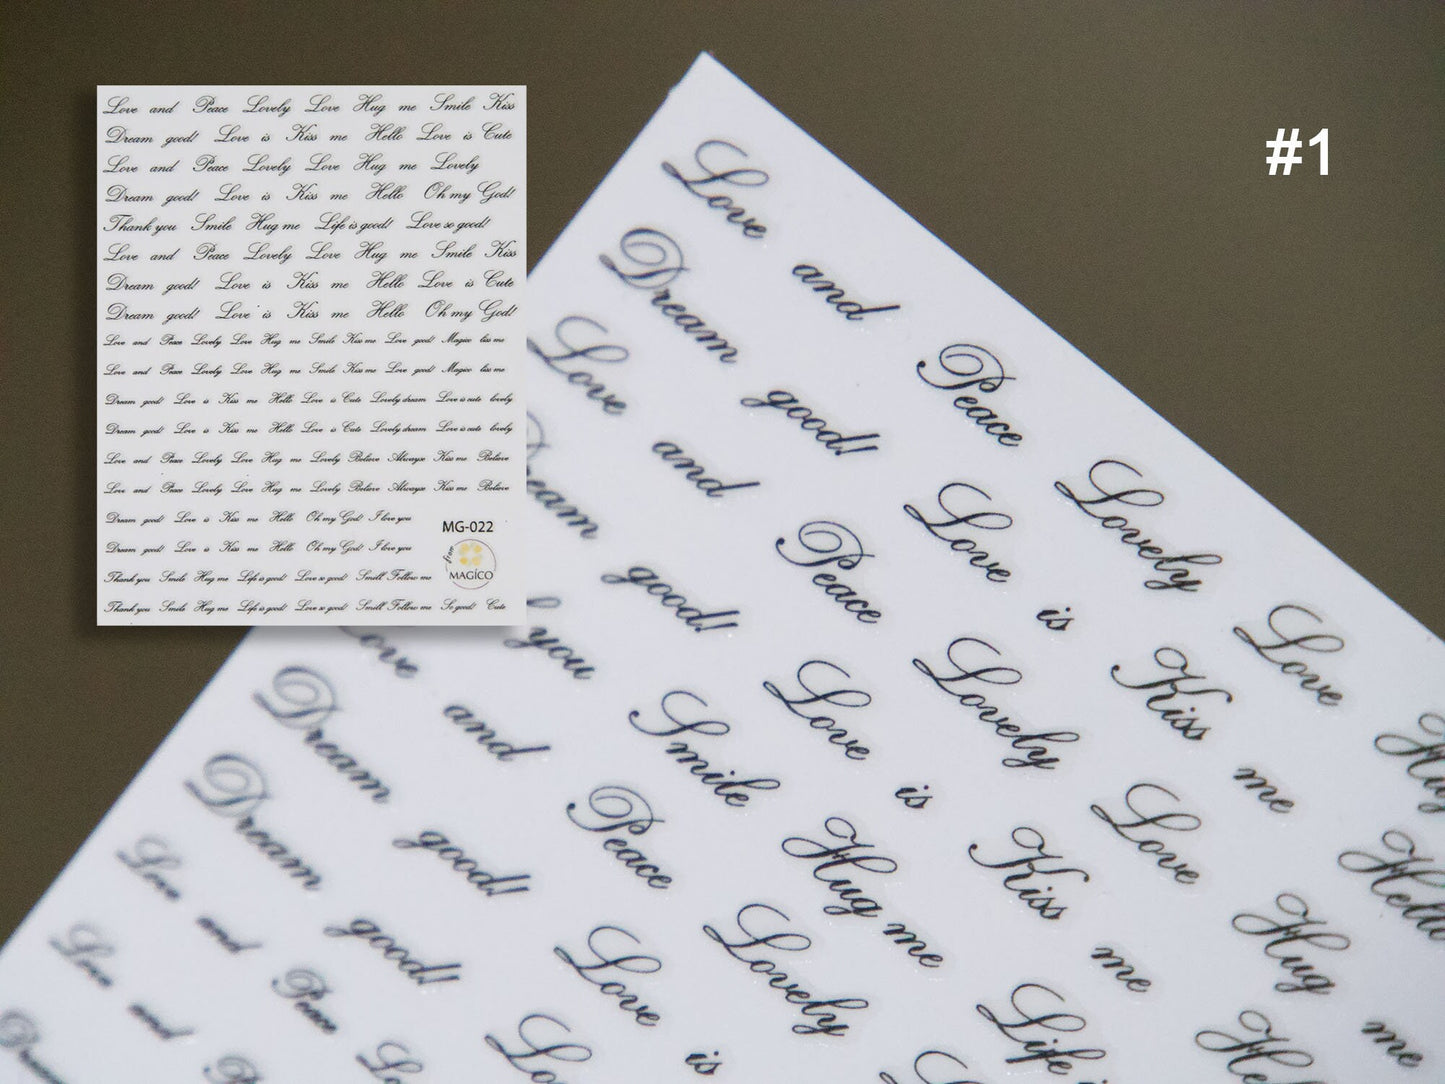 Love and Peace Lovely Love Hug me Smile Kiss
Dream good! Love is Kiss me Hello Love is Cute
Love and Peace Lovely Love Hug me Lovely
Dream good! Love is Kiss me Hello Oh my God!
Thank you Smile Hug me Life is good! Love so good!
Love and Peace Lovely Love Hug me Smile Kiss
Dream good! Love is Kiss me Hello Love is Cute
Dream good! Love is Kiss me Hello Oh my God!
Love and Peace Lovely Love Hug me Smile Kiss me Love good! Magico liss me
Love and Peace Lovely Love Hug me Smile Kiss me Love good! Magico liss me
Dream good! Love is Kiss me Hello Love is Cute Lovely dream Love is cute lovely
Dream good! Love is Kiss me Hello Love is Cute Lovely dream Love is cute lovely
Love and Peace Lovely Love Hug me Lovely Believe Allwayse Kiss me Believe
Love and Peace Lovely Love Hug me Lovely Believe Allwayse Kiss me Believe
Dream good! Love is Kiss me Hello Oh my God! I love you
MG-022
Dream good! Love is Kiss me Hello Oh my God! I love you
free
MAGICO
Thank you Smile Hug me Life is good! Love so good! Smill Follow me
Thank you Smile Hug me Life is good! Love so good! Smill Follow me So good! Cute
#1
Love and Peace Lovely Love Hug
Dream good! Love is Kiss me Hello
Love and Peace Lovely Love Hug me
Dream good! Love is Kiss me
you Smile Hug me Life
Love and Peace Lovely
Dream good! Love is
Dream good!
Love and Peace
Love and
Dream